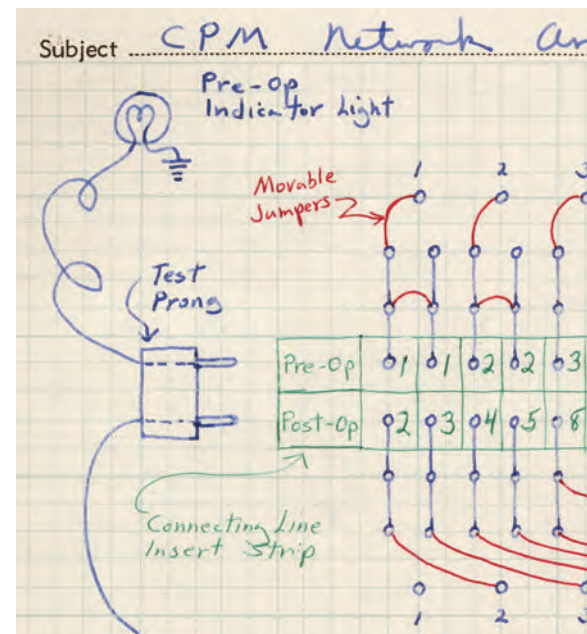 Subject CPM Network
Pre-Op
Indicator Light
1 2 3
Movable
Jumpers
Test
Prong
Pre-Op 1 1 2 2 3
Post-Op 2 3 4 5 8
Connecting Line
Insert Strip
1 2 3